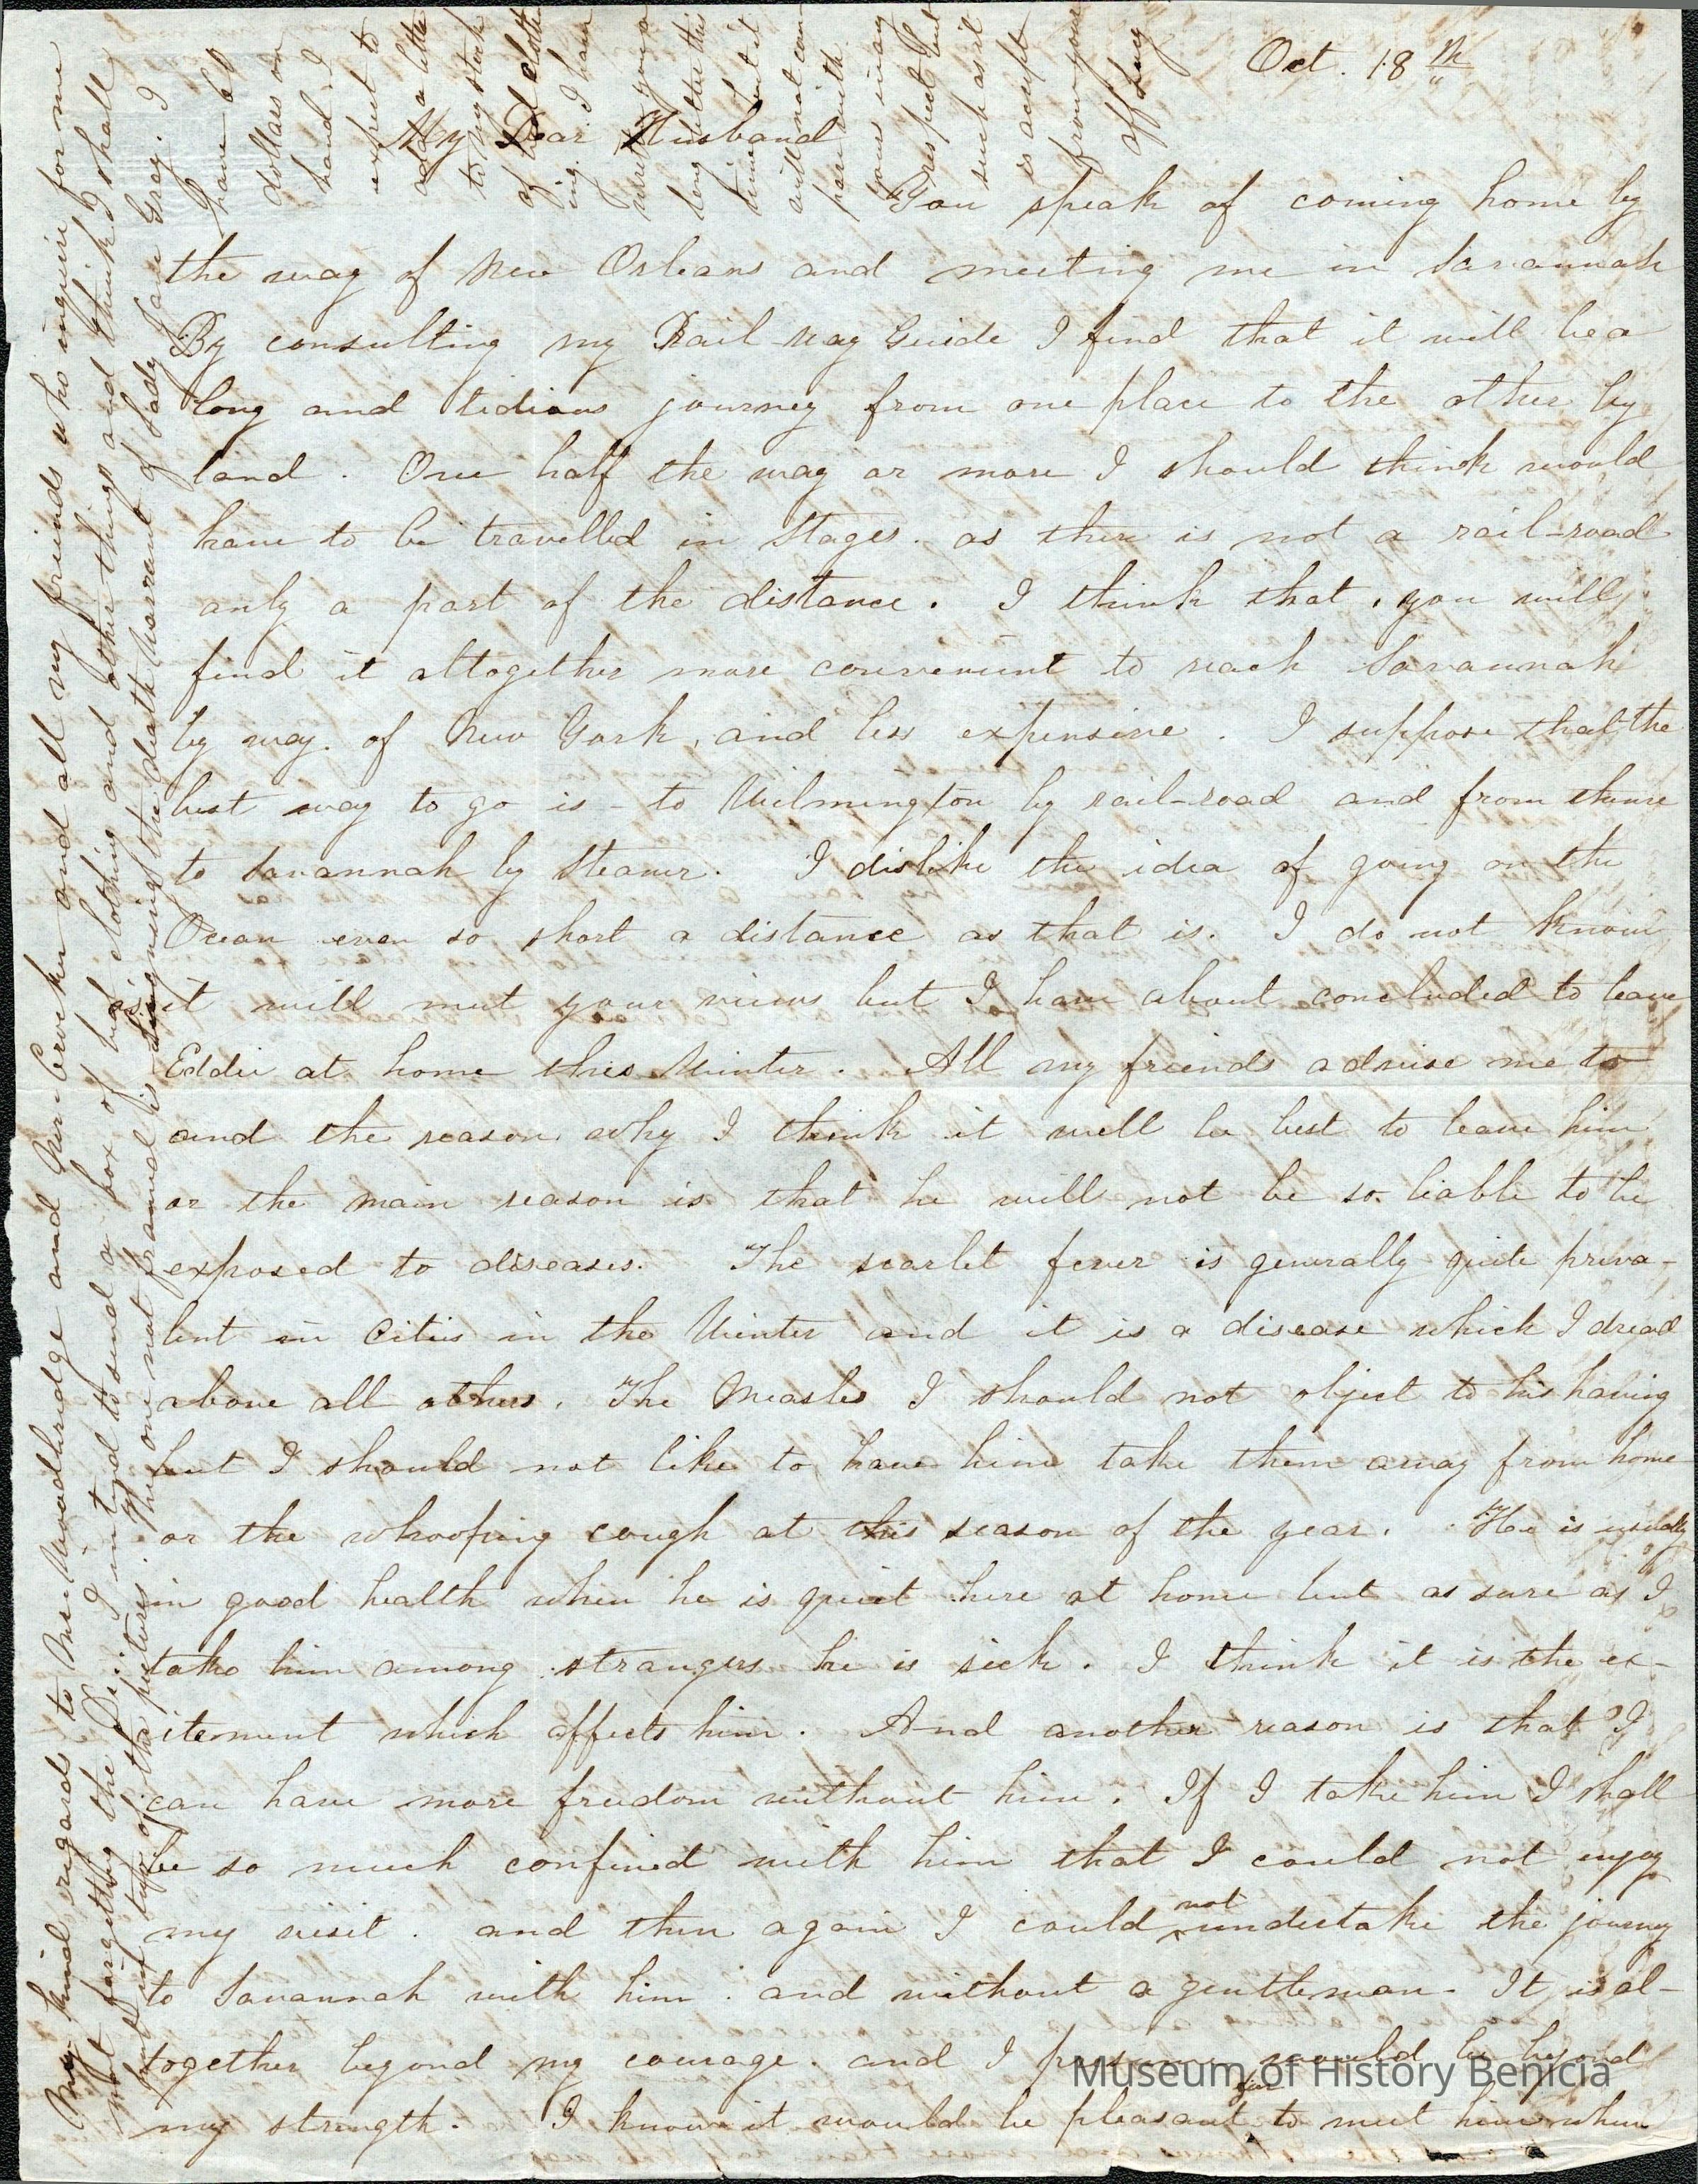 Oct. 18th
My Dear Husband
You speak of coming home by
the way of New Orleans and meeting me in Savannah
By consulting my Rail-way Guide I find that it will be a
long and tidious journey from one place to the other by
land. One half the way or more I should think would
have to be travelled in Stages. as there is not a rail-road
only a part of the distance. I think that you will
find it altogether more convenient to reach Savannah
by way of New York, and less expensive. I suppose that the
best way to go is - to Wilmington by rail-road and from thence
to Savannah by Steamer. I dislike the idea of going on the
Ocean even so short a distance as that is. I do not know
as it will meet your views but I have about concluded to leave
Eddie at home this Winter. All my friends advise me to
and the reason why I think it will be best to leave him
or the main reason is that he will not be so liable to be
exposed to diseases. The scarlet fever is generally quite preva-
lent in Cities in the Winter and it is a disease which I dread
above all others. The Measles I should not object to his having
but I should not like to have him take them away from home
or the whooping cough at this season of the year. He is usually
in good health when he is quiet here at home but as sure as I
take him among strangers he is sick. I think it is the ex-
itement which affects him. And another reason is that I
can have more freedom without him. If I take him I shall
be so much confined with him that I could not enjoy
my visit. and then again I could not undertake the journey
to Savannah with him and without a gentleman. It is al-
together beyond my courage. and I presume would be beyond
my strength. I know it would be pleasant for to meet him when
My kind regard to Mr Woodbridge and Mr Crocker and all my friends who inquire for me
not forgetting the I intend to send a box of bed clothing and other things and think I shall
put in two of the pictures. The one not framed is signing the death warrant of Lady Jane Gray. I
have 60
dollars on
hand. I
expect to
add a little
to my stock
of bed cloth
ing. I have
written you a
long letter this
time but it
will not com
pare with
yours in any
respect but
such as it
is accept
from your
aff Lucy
Museum of History Benicia